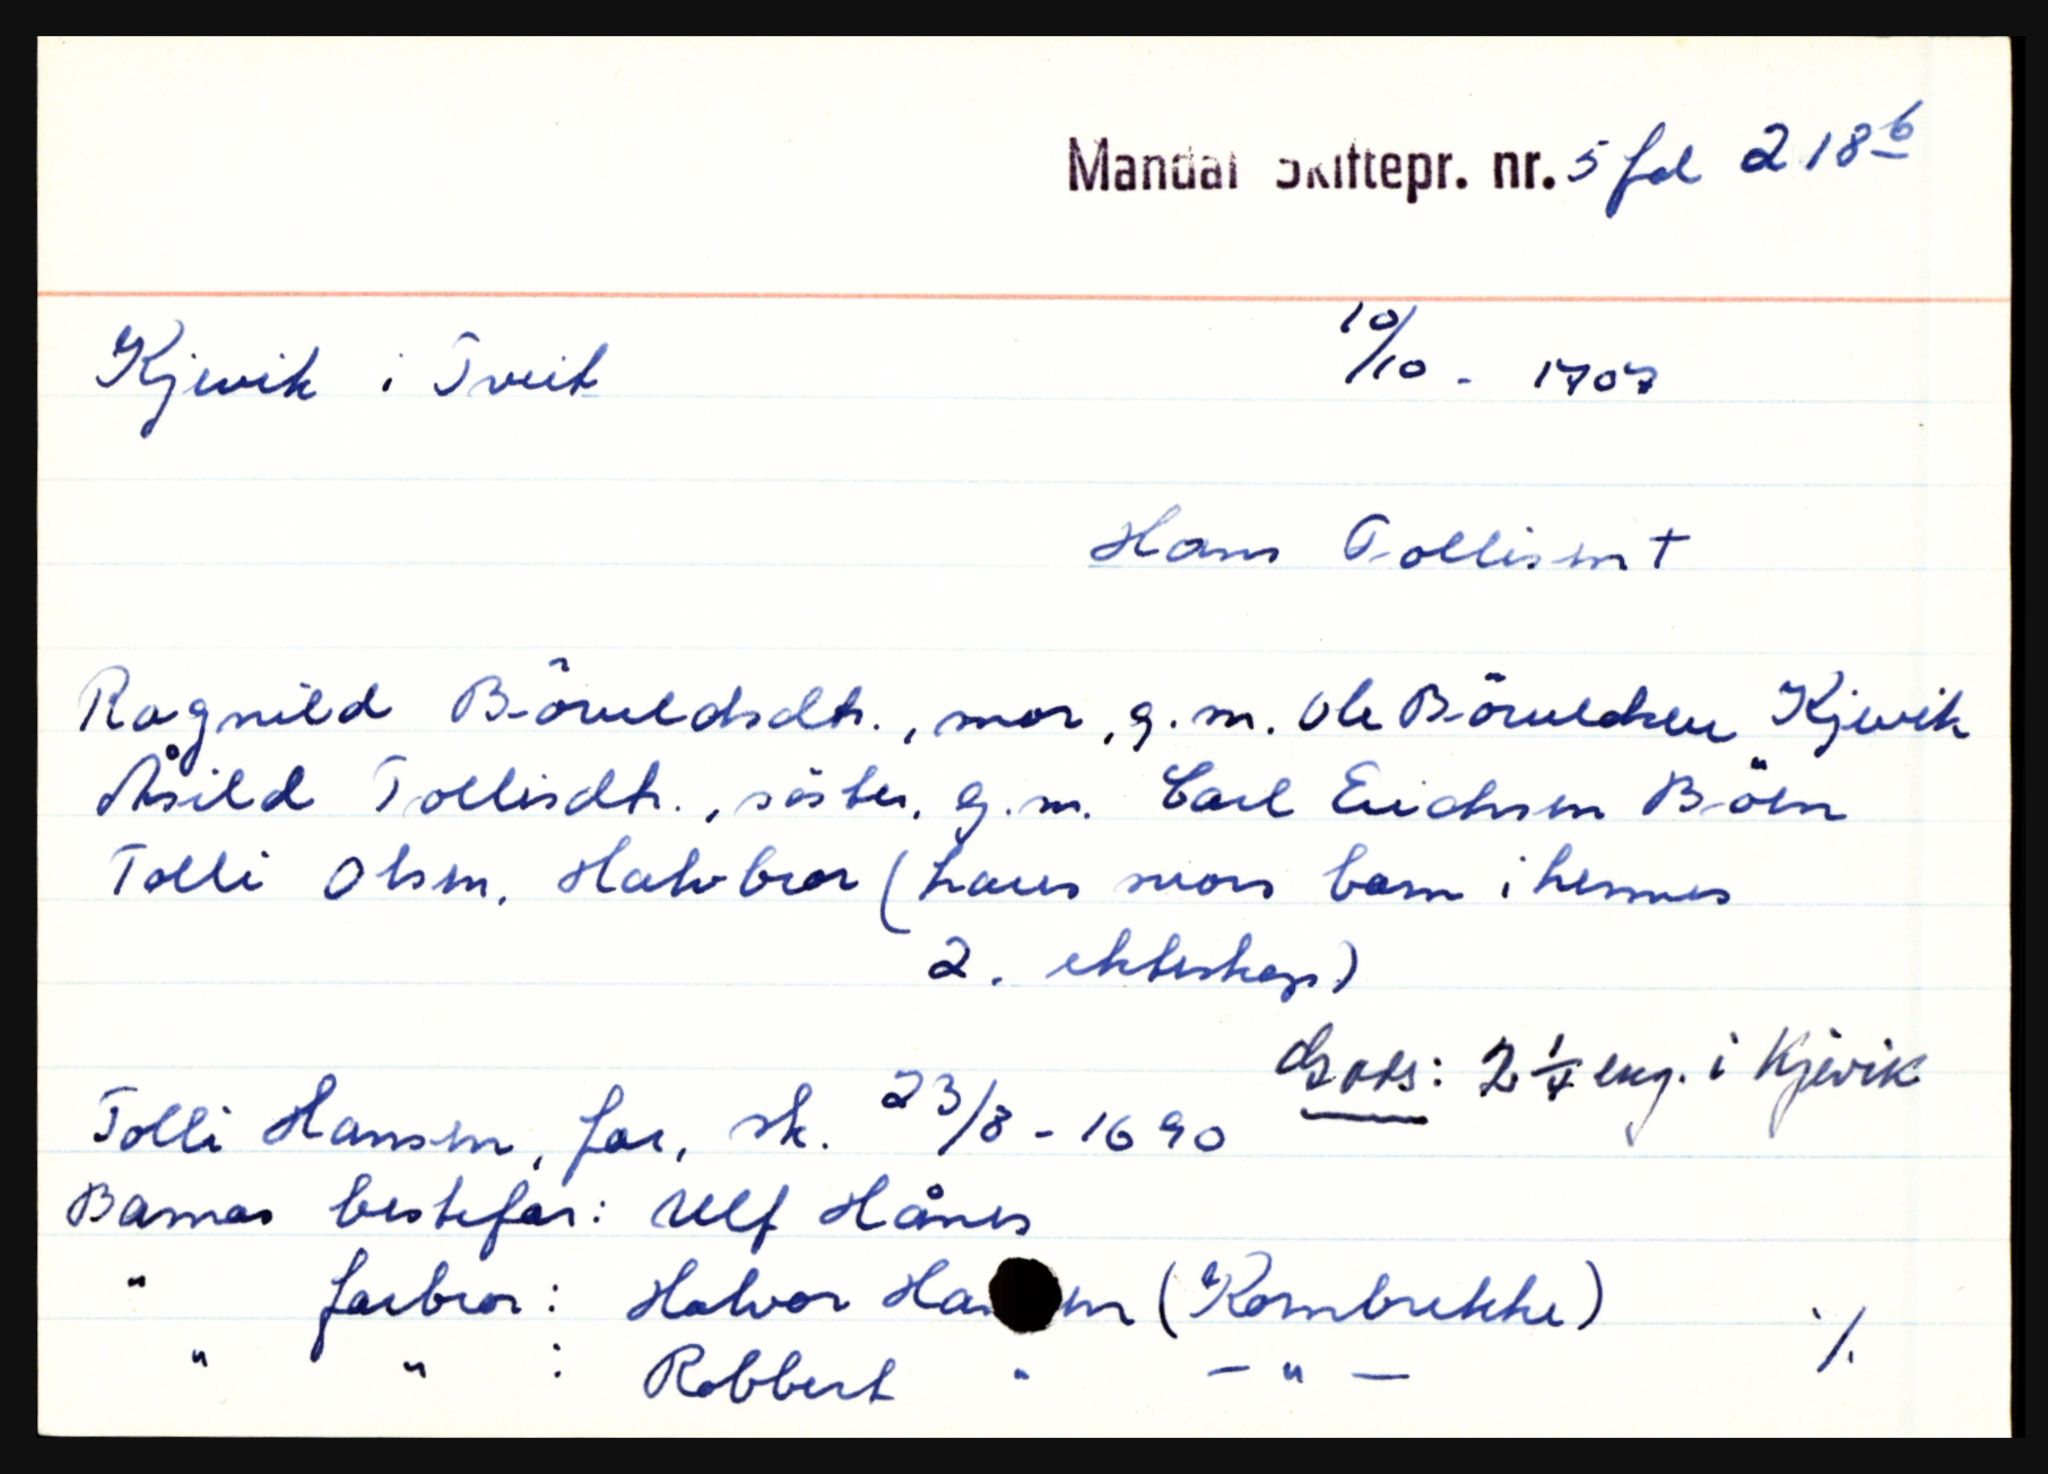 Mandal Skiftepr. nr. 5 fol 218 b
Kjevik i Tveit 10/10 - 1707
Hans Tollisen +
Ragnild Börueldsdtr., mor, g. m. Ole Börueldsen Kjevik
Åsild Tollisdtr., söster, g. m. Carl Erichsen Böen
Tolli Olsen, Halvbror (hans mors barn i hennes
2. ekteskap)
Gods: 2 1/4 eng. i Kjevik
Tolli Hansen, far, sk. 23/8 - 1690
Barnas bestefar: Ulf Hånes
" farbror: Halvor Hansen (Kornbrekke)
" " : Robbert " - " -
./.